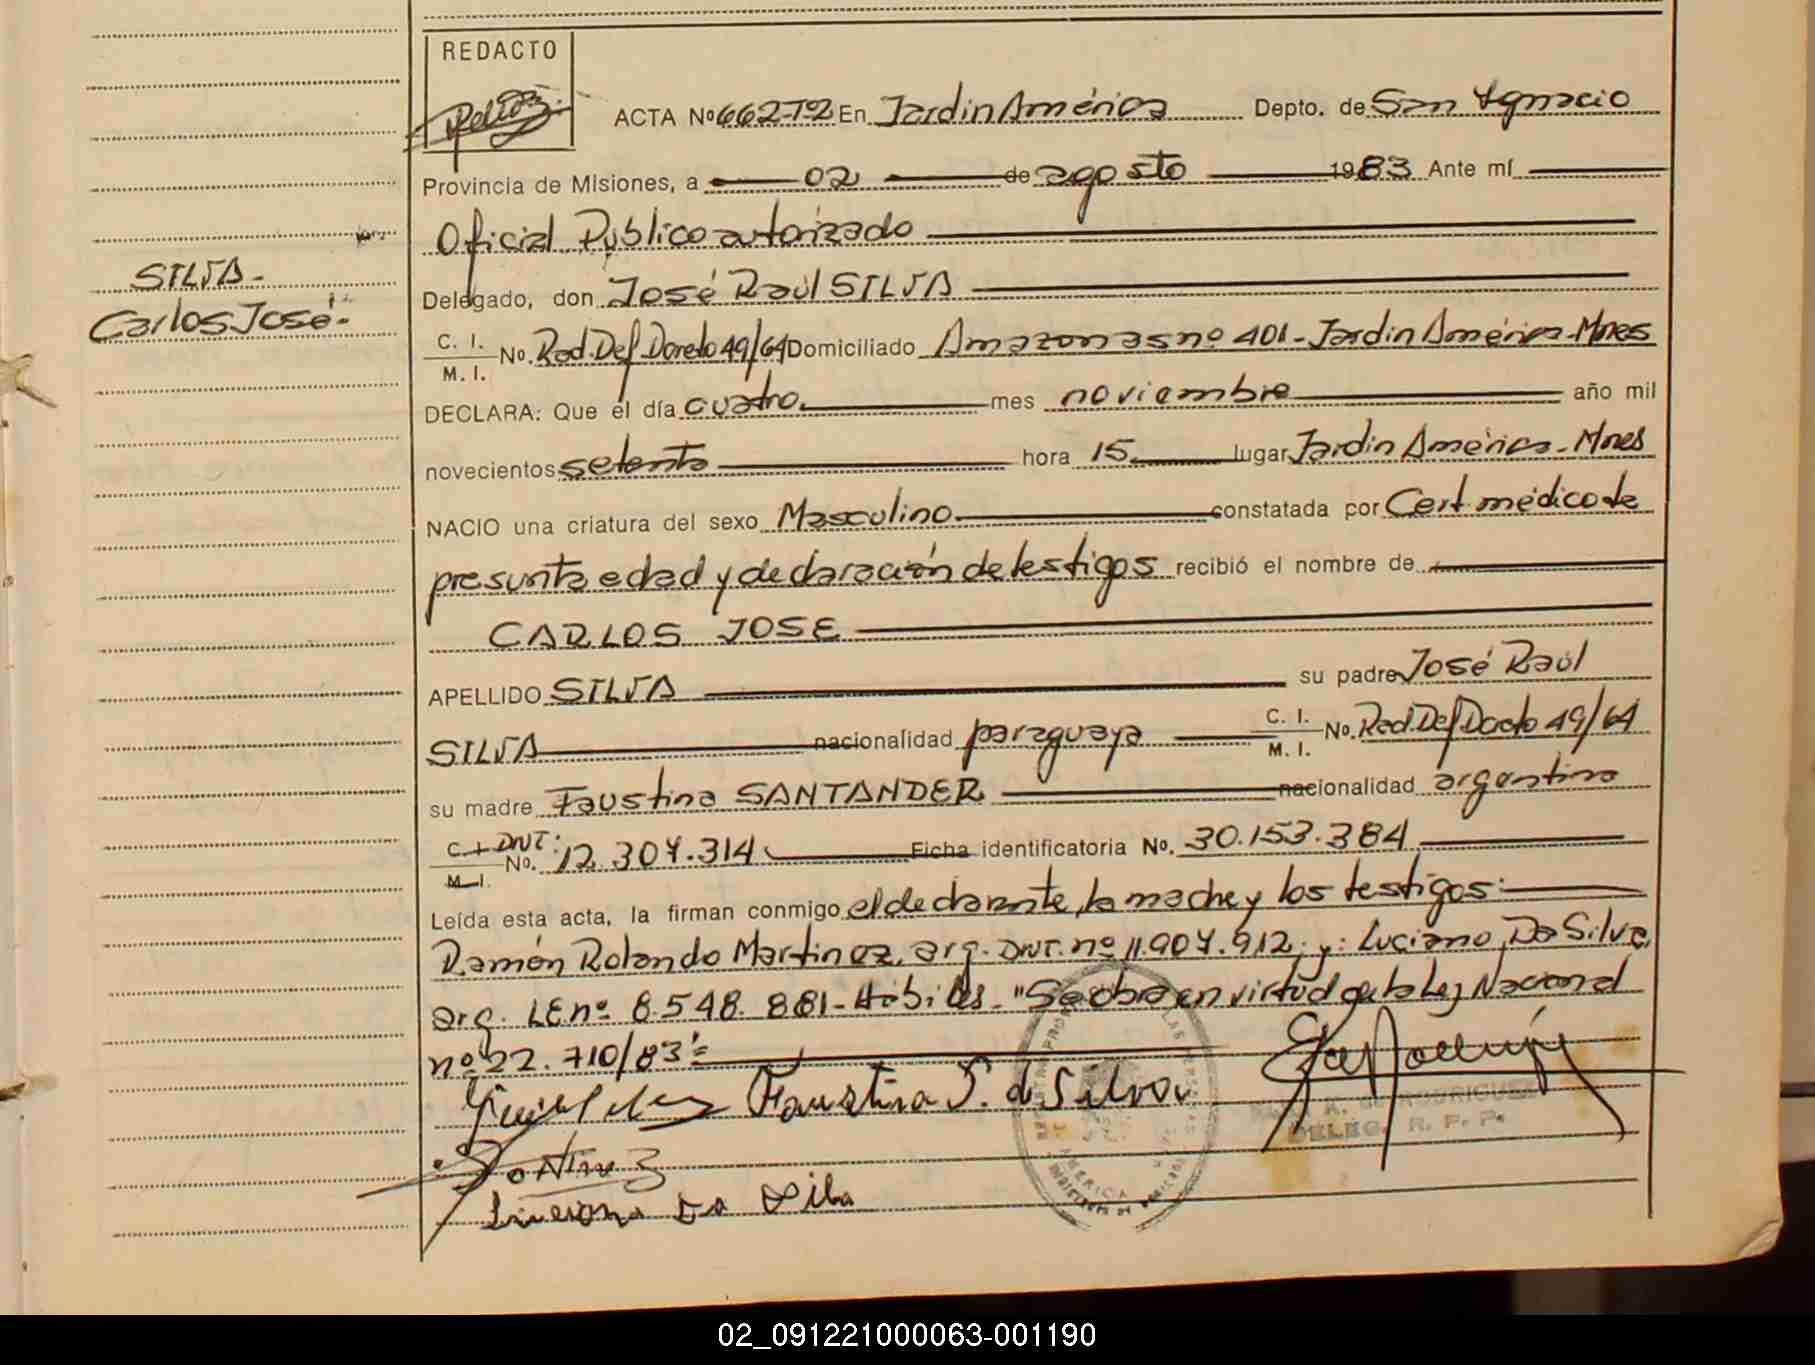 REDACTO
ACTA Nº 662-Tº2 En Jardin América Depto. de San Ignacio
Provincia de Misiones, a 02 de agosto 1983 Ante mí
Oficial Público autorizado
SILVA-
Delegado, don José Raúl SILVA
Carlos José-
C. I. M. I. No. Rad. Def Doreto 49/64 Domiciliado Amazonas nº 401-Jardin América-Mnes
DECLARA: Que el día cuatro mes noviembre año mil
novecientos setenta hora 15 lugar Jardin América-Mnes
NACIO una criatura del sexo Masculino constatada por Cert. médico de
presunta edad y declaración de testigos recibió el nombre de
CARLOS JOSE
APELLIDO SILVA su padre José Raúl
SILVA nacionalidad paraguaya C. I. M. I. No. Rad. Def Doreto 49/64
su madre Faustina SANTANDER nacionalidad argentina
C. I. M. I. DNI: No. 12.307.314 Ficha identificatoria No. 30.153.384
Leída esta acta, la firman conmigo el declarante, la madre y los testigos:
Ramón Rolando Martinez, arg. DNI. nº 11.907.912; y: Luciano Da Silva,
arg. LE nº 8.548.881-Hábiles- "Se labra en virtud de la Ley Nacional
nº 22.710/83"=
Faustina S. d Silva
RODRIGUEZ
DELEG. R. P. P.
Luciano Da Silva
02_091221000063-001190